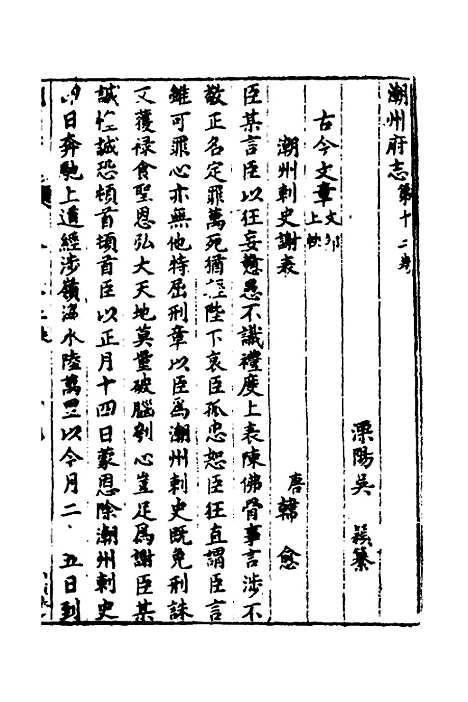 潮州府志第十二卷
溧陽吳 穎纂
古今文章文部
上
潮州刺史謝表
唐韓 愈
臣某言臣以狂妄戇愚不識禮度上表陳佛骨事言涉不
敬正名定罪萬死猶輕陛下哀臣孤忠恕臣狂直謂臣言
雖可罪心亦無他特屈刑章以臣爲潮州刺史既免刑誅
又獲祿食聖恩弘大天地莫量破腦刳心豈足爲謝臣某
誠惶誠恐頓首頓首臣以正月十四日蒙恩除潮州刺史
日奔馳上道經涉嶺海水陸萬里以今月二 五日到